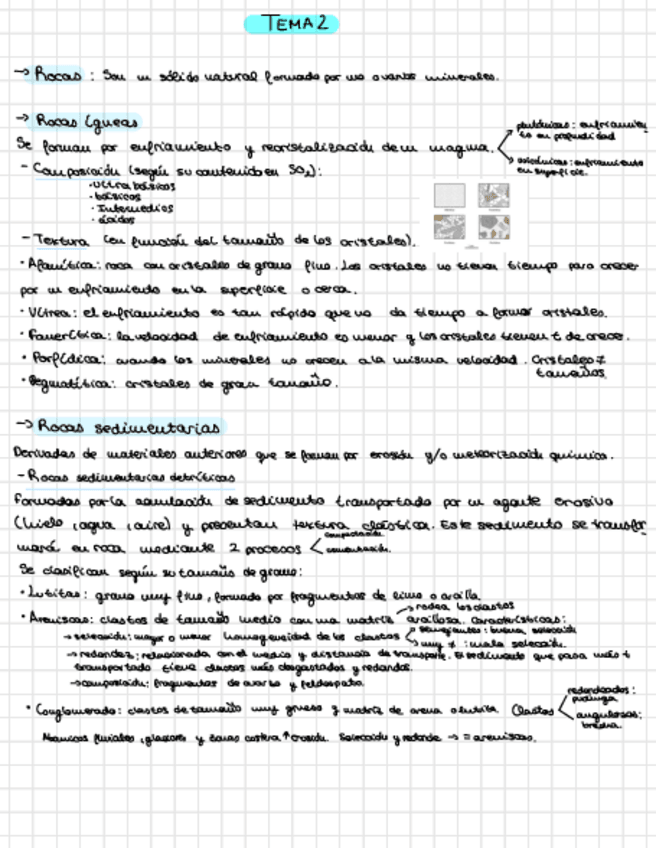 TEMA 2
→ Rocas : Son un sólido natural formado por uno o varios minerales.
→ Rocas ígneas
Se forman por enfriamiento y recristalización de un magma.
plutónicas: enfriamiento en profundidad
volcánicas: enfriamiento en superficie.
- Composición (según su contenido en SO₂):
· Ultrabásicos
· básicos
· Intermedios
· ácidos
- Textura (en función del tamaño de los cristales).
· Afanítica: roca con cristales de grano fino. Los cristales no tienen tiempo para crecer
por un enfriamiento en la superficie o cerca.
· Vítrea: el enfriamiento es tan rápido que no da tiempo a formar cristales.
· Fanerítica: la velocidad de enfriamiento es menor y los cristales tienen t de crecer.
· Porfídica: cuando los minerales no crecen a la misma velocidad. Cristales ≠
tamaños.
· Pegmatítica: cristales de gran tamaño.
→ Rocas sedimentarias
Derivadas de materiales anteriores que se forman por erosión y/o meteorización química.
- Rocas sedimentarias detríticas
Formadas por la acumulación de sedimento transportado por un agente erosivo
(hielo, agua, aire) y presentan textura clástica. Este sedimento se transfor
mará en roca mediante 2 procesos
compactación
cementación.
Se clasifican según su tamaño de grano:
· Lutitas: grano muy fino, formado por fragmentos de limo o arcilla.
· Areniscas: clastos de tamaño medio con una matriz arcillosa. Características:
→ rodea los clastos
→ selección: mayor o menor homogeneidad de los clastos
semejantes: buena selección
muy ≠ : mala selección
→ redondez: relacionada con el medio y distancia de transporte. El sedimento que pasa más t
transportado tiene clastos más desgastados y redondos.
→ composición: fragmentos de cuarzo y feldespato.
· Conglomerado: clastos de tamaño muy grueso y matriz de arena o lutita. Clastos
redondeados:
pudinga
angulosos:
brecha.
Abanicos fluviales, glaciares y zonas costera ↑ erosión. Selección y redondez → = areniscas.